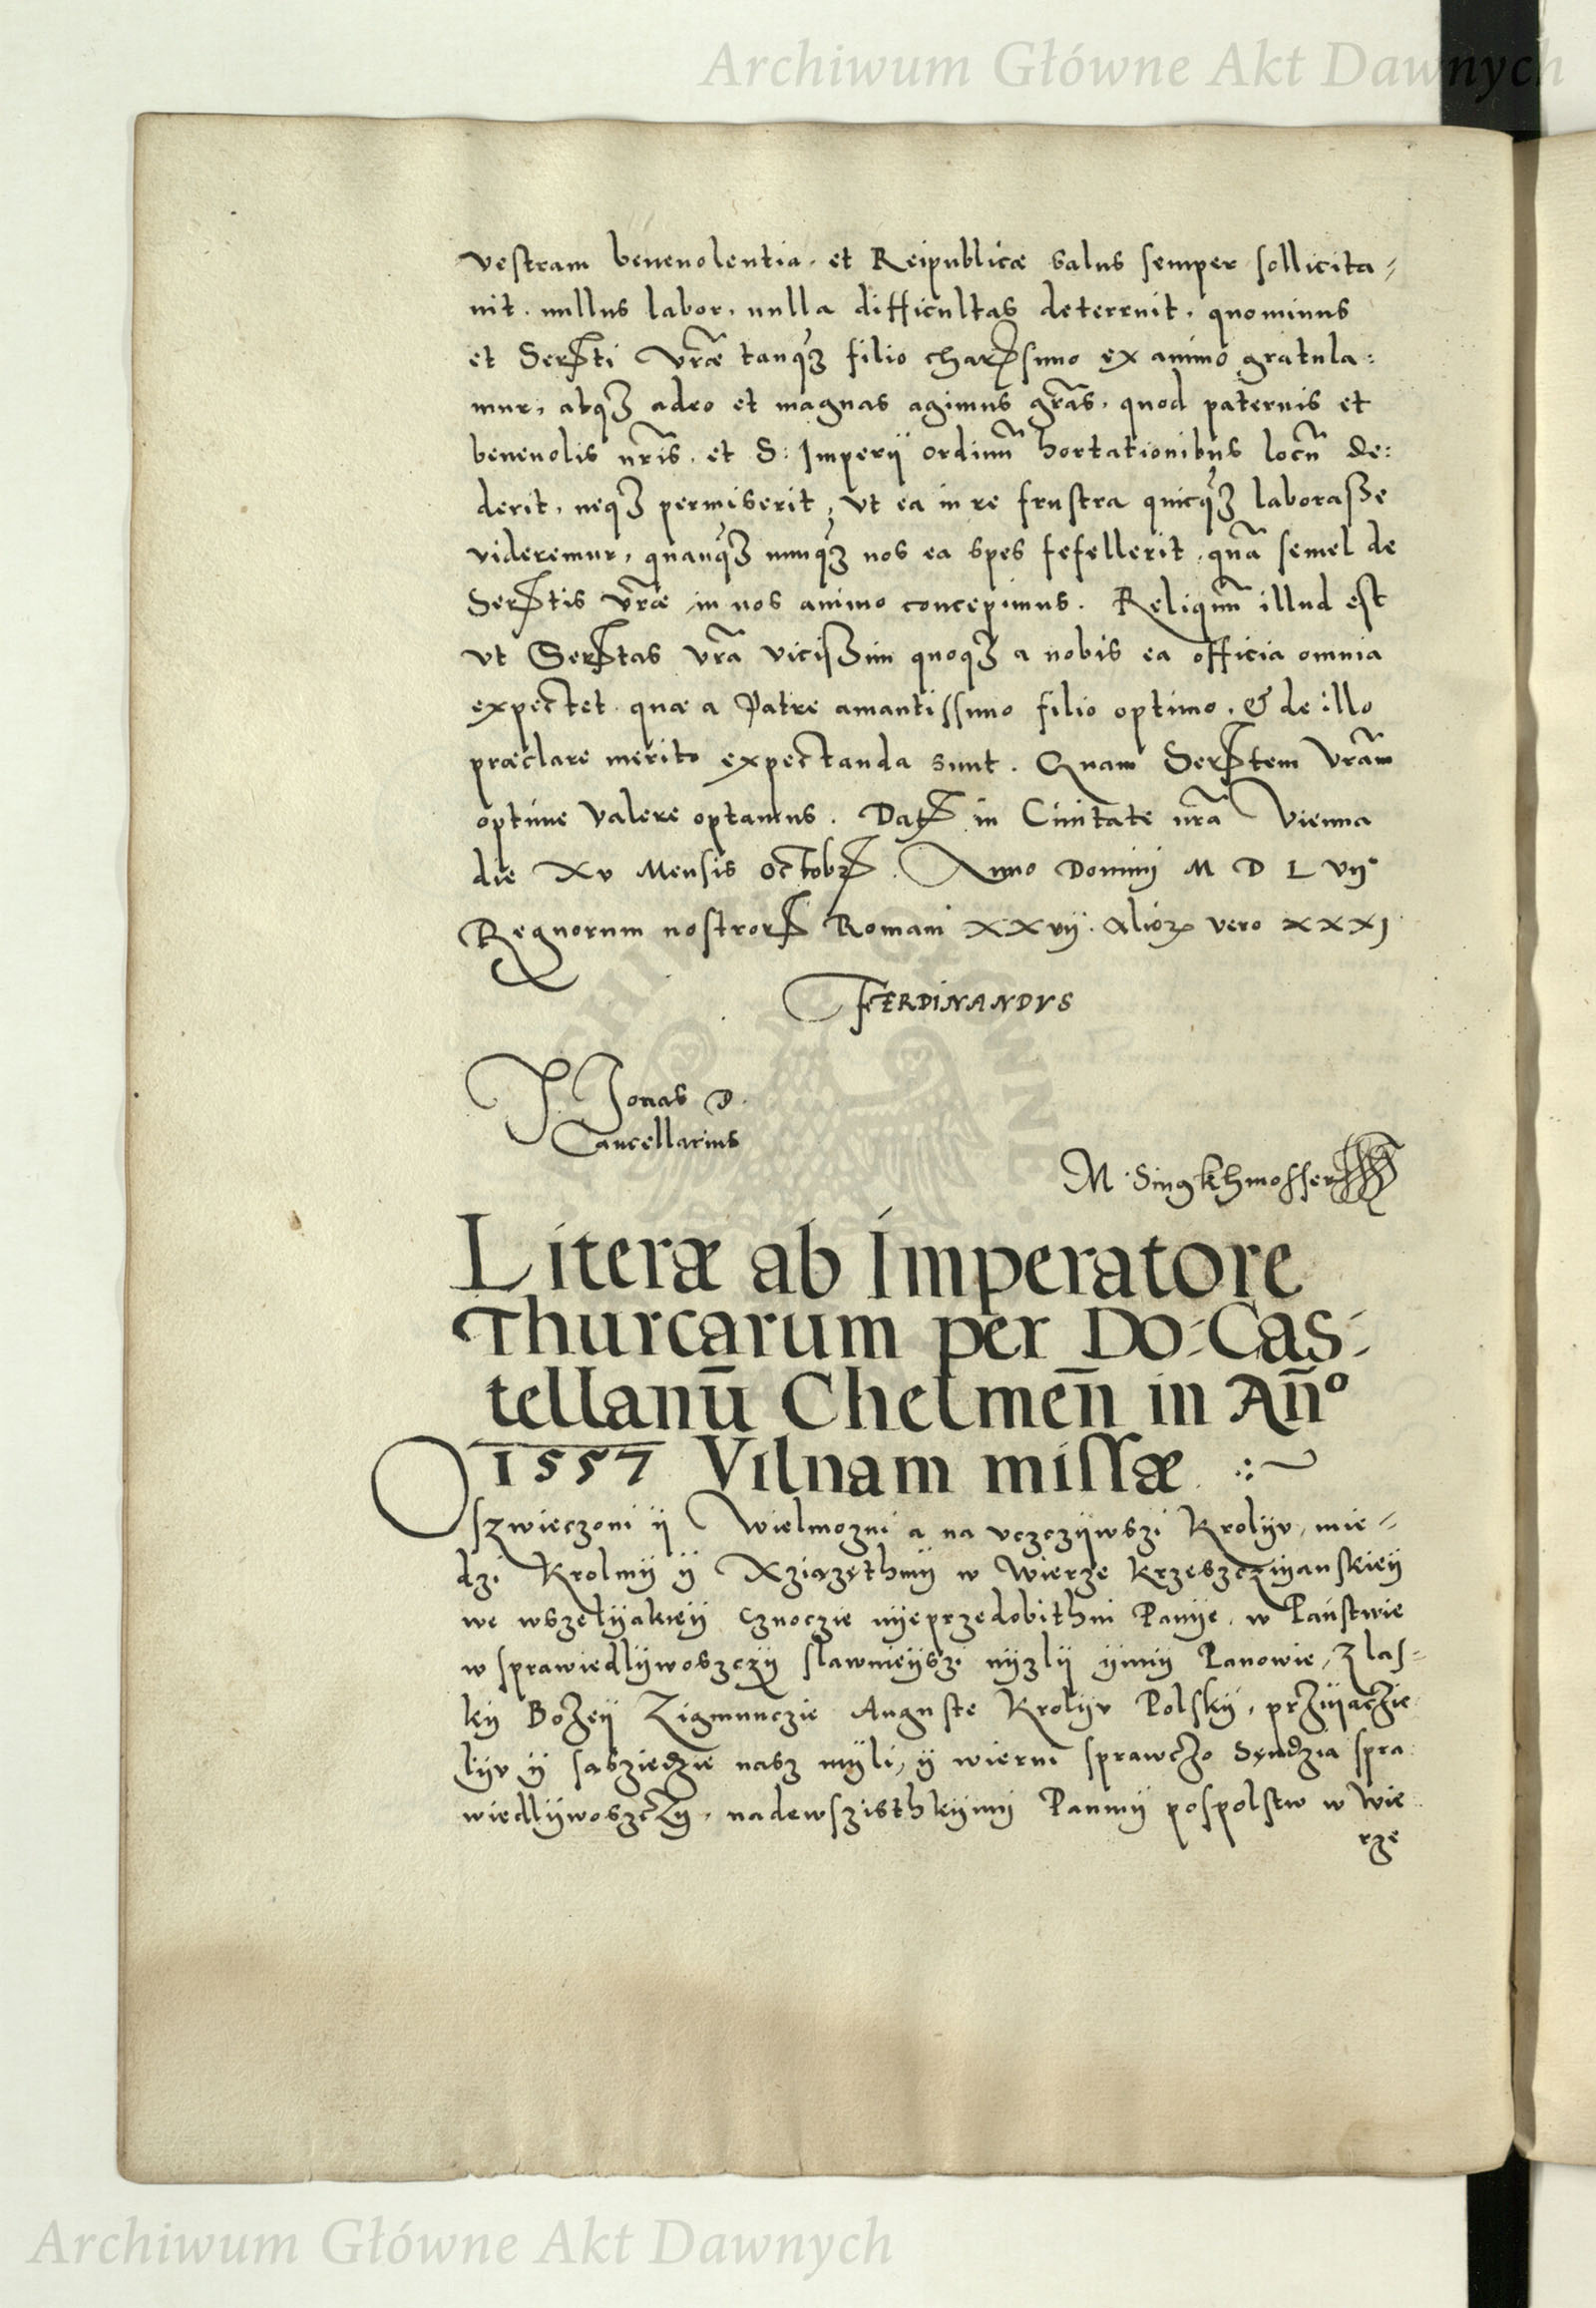 Archiwum Główne Akt Dawnych
vestram beneuolentia, et Reipublicæ salus semper sollicita-
uit, nullus labor, nulla difficultas deterruit, quominus
et Serꝭti vr̃æ tanqꝫ filio charꝭsimo ex animo gratula:
mur, atqꝫ adeo et magnas agimus gr̃as, quod paternis et
beneuolis nr̃is, et S: Imperij ordinũ hortationibus locũ de:
derit, neqꝫ permiserit, vt ea in re frustra quicqꝫ laborasse
videremur, quanqꝫ nunqꝫ nos ea spes fefellerit, quã semel de
Serꝭtis vr̃æ in nos animo concepimus. Reliquũ illud est
vt Serꝭtas vr̃a vicissim quoqꝫ a nobis ea officia omnia
expectet quæ a Patre amantissimo filio optimo, & de illo
præclare merito expectanda sunt. Quam Serꝭtem Vr̃am
optime Valere optamus. Datꝭ in Ciuitate nr̃a Vienna
die Xv Mensis Octobrꝭ. Anno Dominj M D L Vij°
Regnorum nostrorꝭ Romani XXvij. Alioꝝ vero XXXI
FERDINANDVS
J. Jonas D.
Cancellarius
M. Singkhmosser
Literæ ab Imperatore
Thurcarum per Do: Cas-
tellanū Chelmen̄ in An̄°
1557 Vilnam missæ
Oszwieczoni ÿ Wielmozni a na vczczÿwszi Krolÿv, mie-
dzi Krolmÿ ÿ Xziązęthmÿ w Wierze krzeszcziÿanskieÿ
we wszelÿakieÿ Cznoczie nÿeprzedobithni Panÿe, w Państwie
w sprawiedlÿwoszczÿ slawnieÿszi nÿzlÿ ÿnnÿ Panowie, z las-
kÿ Bożeÿ Zigmunczie Auguste Krolÿv Polskÿ, prżÿiacżie
lÿv ÿ sąsziedzie nasz mÿli, ÿ wierni sprawcżo Sęndzia spra
wiedlÿwoszcżÿ, nadewszisthkÿmÿ Panmÿ pospolstw w Wie
rze
Archiwum Główne Akt Dawnych